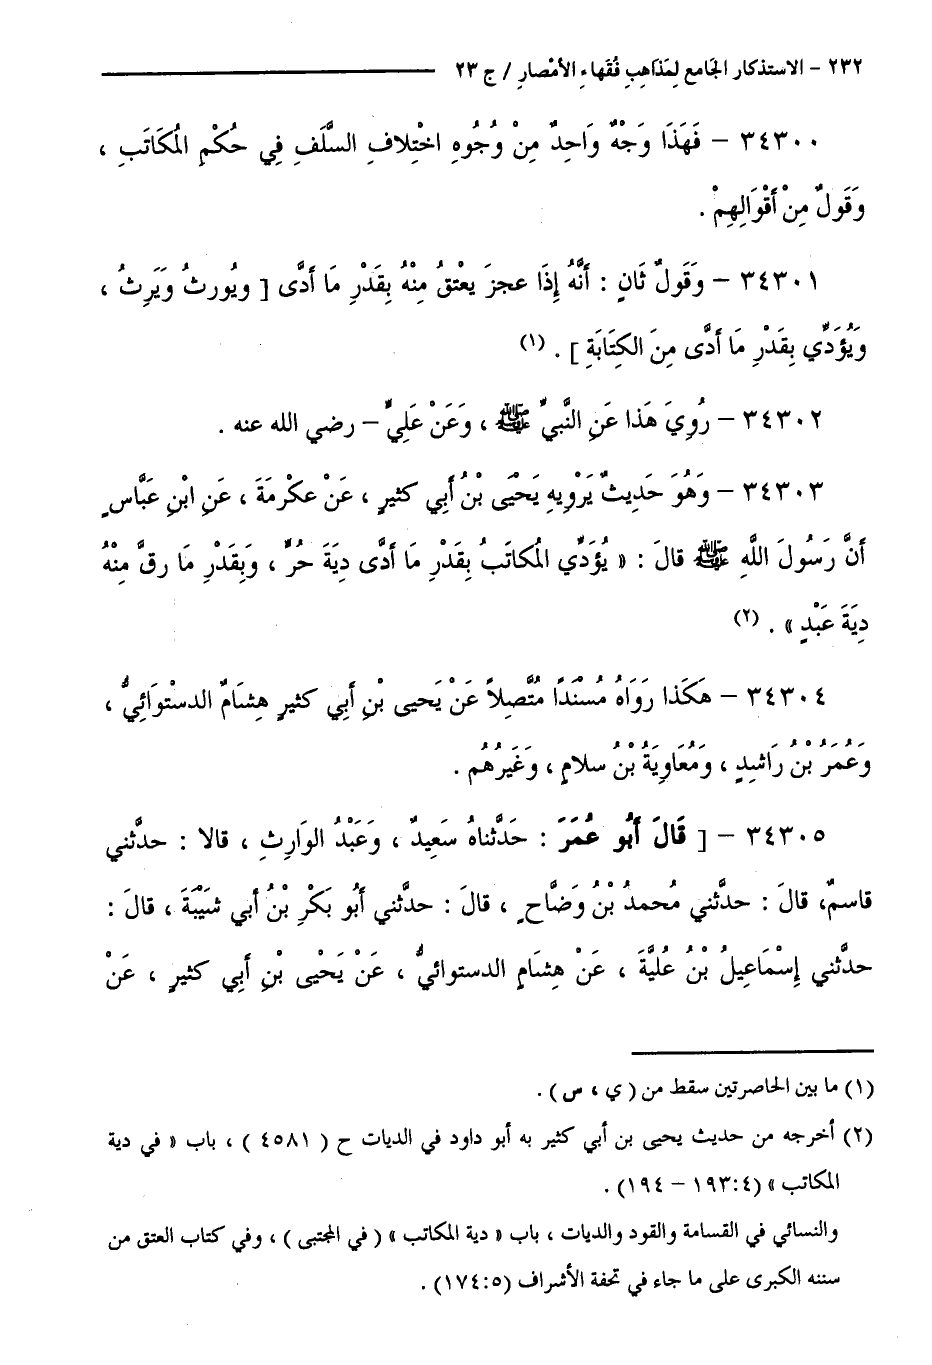 ٢٣٢ - الاستذكار الجَامع لِمَذَاهِبِ فُقَهاءِ الأمْصارِ / ج ٢٣
٣٤٣٠٠ - فَهَذَا وَجْهٌ وَاحِدٌ مِنْ وُجُوهِ اخْتِلافِ السَّلَفِ فِي حُكْمِ الْمُكَاتَبِ ،
وَقَولٌ مِنْ أَقْوَالِهِمْ .
٣٤٣٠١ - وَقَولٌ ثَانٍ : أَنَّهُ إِذَا عجزَ يعْتقُ مِنْهُ بِقَدْرِ مَا أَدَّى [ ويُورثُ وَيَرِثُ ،
وَيُؤَدِّي بِقَدْرِ مَا أَدَّى مِنَ الكِتَابَةِ ] . (١)
٣٤٣٠٢ - رُوِيَ هَذا عَنِ النَّبيِّ ﷺ ، وَعَنْ عَلِيٍّ - رضي الله عنه .
٣٤٣٠٣ - وَهُوَ حَدِيثٌ يَرْوِيهِ يَحْيَى بْنُ أَبِي كثيرٍ ، عَنْ عكْرمَةَ ، عَنِ ابْنِ عَبَّاسٍ
أَنَّ رَسُولَ اللَّهِ ﷺ قالَ : « يُؤَدِّي الْمُكاتَبُ بِقَدْرِ مَا أَدى دِيَةَ حُرٍّ ، وَبِقَدْرِ مَا رقَّ مِنْهُ
دِيَةَ عَبْدٍ » . (٢)
٣٤٣٠٤ - هَكَذا رَوَاهُ مُسْنَدًا مُتَّصِلاً عَنْ يَحيى بْنِ أَبِي كثيرٍ هِشَامٌ الدستْوَائِيُّ ،
وَعُمَرُ بْنُ رَاشِدٍ ، وَمُعَاوِيَةُ بْنُ سلامٍ ، وَغَيرُهُم .
٣٤٣٠٥ - [ قَالَ أَبُو عُمَرَ : حَدَّثناهُ سَعِيدٌ ، وَعَبْدُ الوَارِثِ ، قالا : حدَّثني
قاسمٌ، قالَ : حدَّثني مُحمدُ بْنُ وَضَّاحٍ ، قالَ : حدَّثني أَبُو بَكْرِ بْنُ أبي شَيْبَةَ ، قالَ :
حدَّثني إِسْمَاعِيلُ بْنُ عُلَيَّةَ ، عَنْ هِشَامٍ الدستوائيُّ ، عَنْ يَحْيى بْنِ أَبِي كثيرٍ ، عَنْ
(١) ما بين الحاصرتين سقط من ( ي ، س ) .
(٢) أخرجه من حديث يحيى بن أبي كثير به أبو داود في الديات ح ( ٤٥٨١ ) ، باب « في دية
المكاتب » (٤ : ١٩٣ - ١٩٤) .
والنسائي في القسامة والقود والديات ، باب « دية المكاتب » ( في المجتبى ) ، وفي كتاب العتق من
سننه الكبرى على ما جاء في تحفة الأشراف (٥ : ١٧٤) .